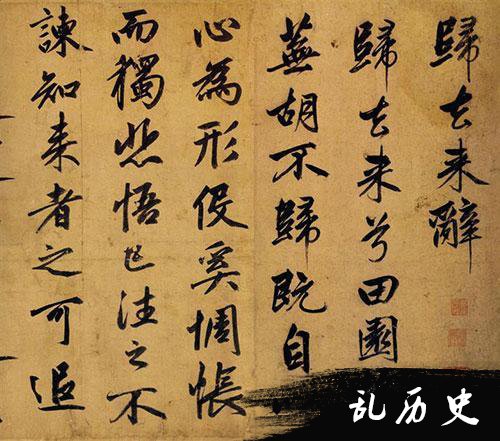 歸去来辭
歸去来兮田園
蕪胡不歸既自
心為形役奚惆悵
而獨悲悟已往之不
諫知来者之可追
乱历史